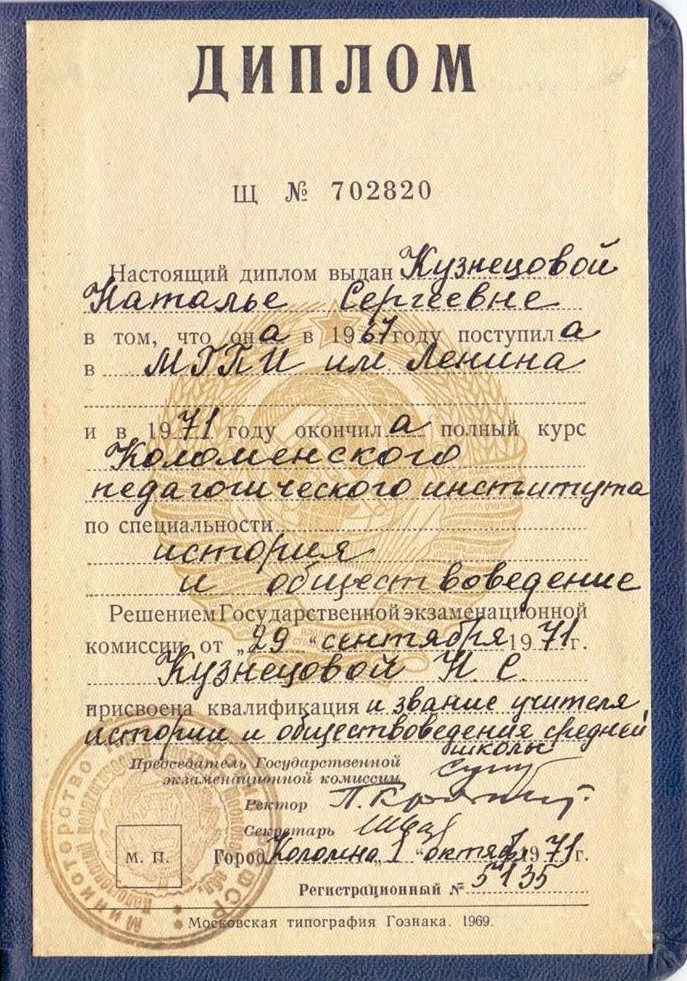 ДИПЛОМ
Щ № 702820
Настоящий диплом выдан Кузнецовой
Наталье Сергеевне
в том, что она в 1967 году поступила
в МГПИ им Ленина
и в 1971 году окончила полный курс
Коломенского
педагогического института
по специальности
история
и обществоведение
Решением Государственной экзаменационной
комиссии от „29 “ сентября 1971 г.
Кузнецовой Н С.
присвоена квалификация и звание учителя
истории и обществоведения средней
школы
Председатель Государственной
экзаменационной комиссии
Ректор
Секретарь
М. П.
Город Коломна, 1 “ октября 1971 г.
Регистрационный № 5135
Московская типография Гознака. 1969.